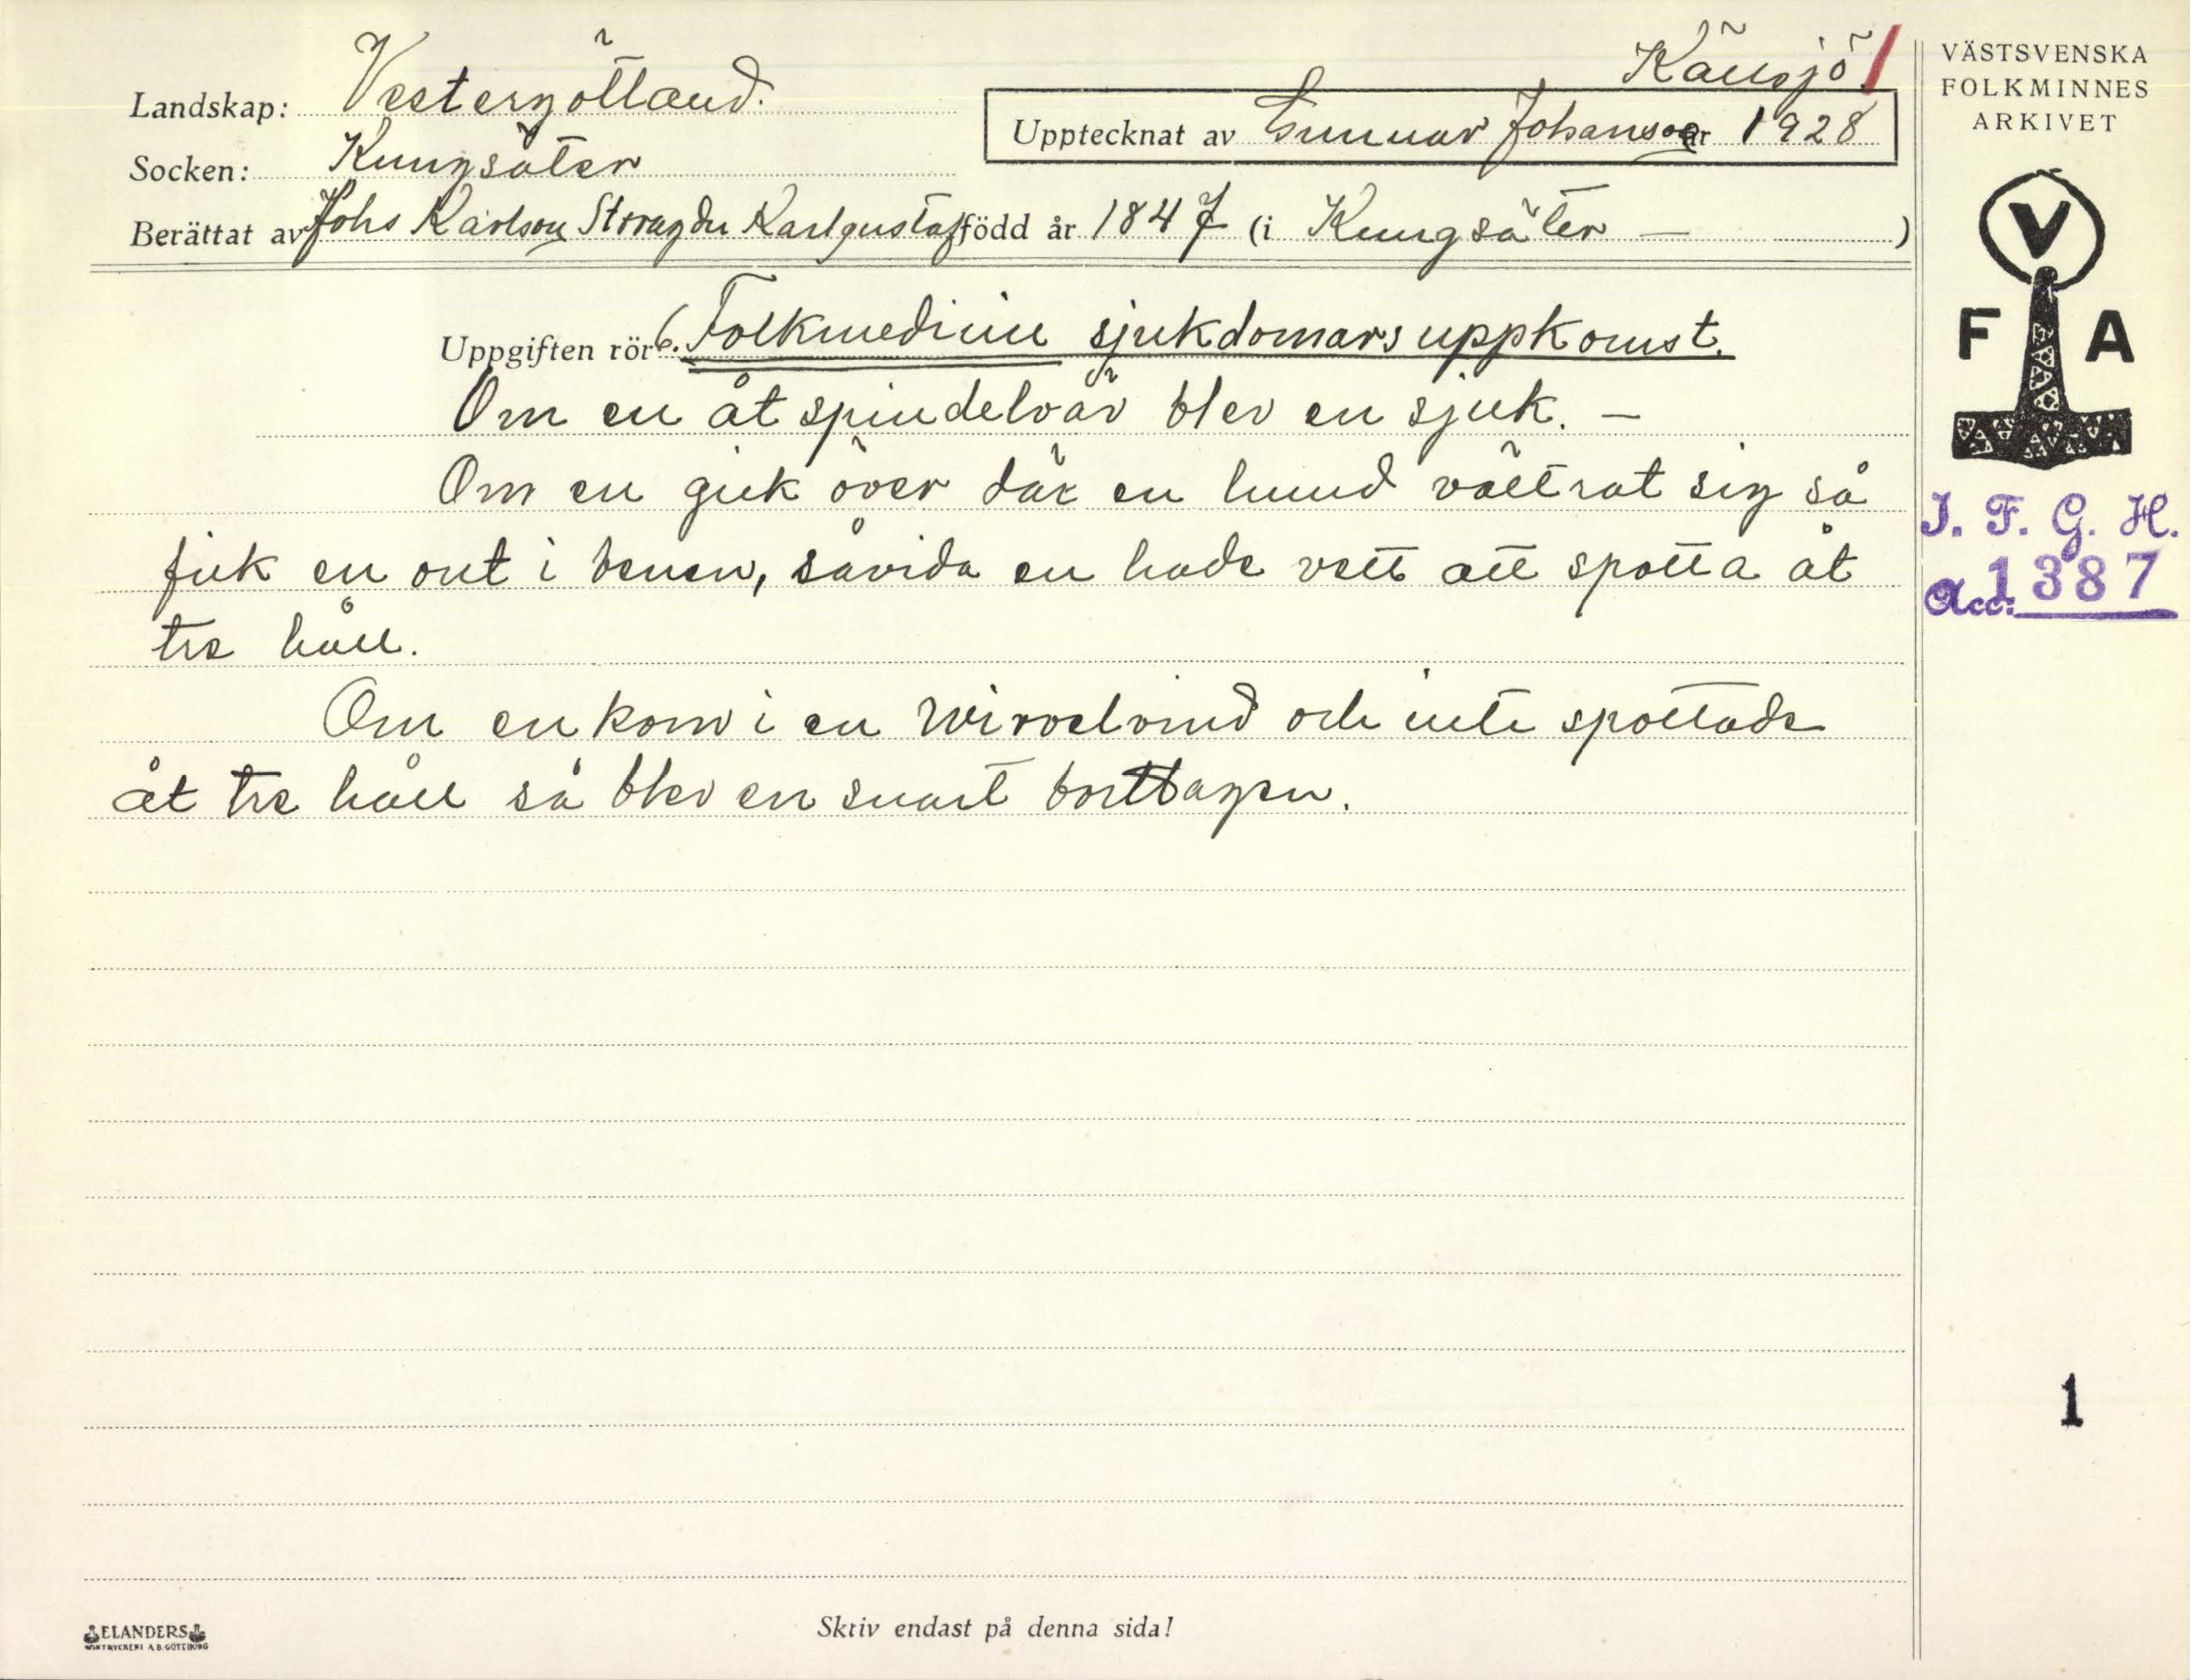 Källsjö /
VÄSTSVENSKA
FOLKMINNES
ARKIVET
Landskap: Vestergötland.
Upptecknat av Gunnar Johanson år 1928
Socken: Kungsäter
Berättat av Johs Karlson Karlgustaf född år 1847 (i Kungsäter — )
V
F A
Uppgiften rör 6. Folkmedicin sjukdomars uppkomst.
Om en åt spindelväv blev en sjuk. —
Om en gick över där en hund vältrat sig så
fick en ont i benen, såvida en hade vett att spotta åt
tre håll.
Om en kom i en wirvelvind och inte spottade
åt tre håll så blev en snart borttagen.
I. F. G. H.
Acc. 1387
1
ELANDERS
BOKTRYCKERI A.B. GÖTEBORG
Skriv endast på denna sida!